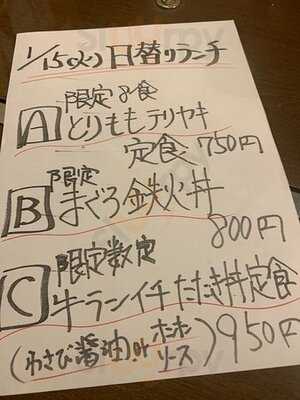 1/15(火)日替りランチ
A 限定8食
とりももテリヤキ
定食 750円
B 限定
まぐろ鉄火丼
800円
C 限定数定
牛ランイチたたき丼定食
(わさび醤油 or ポン酢ソース) 950円